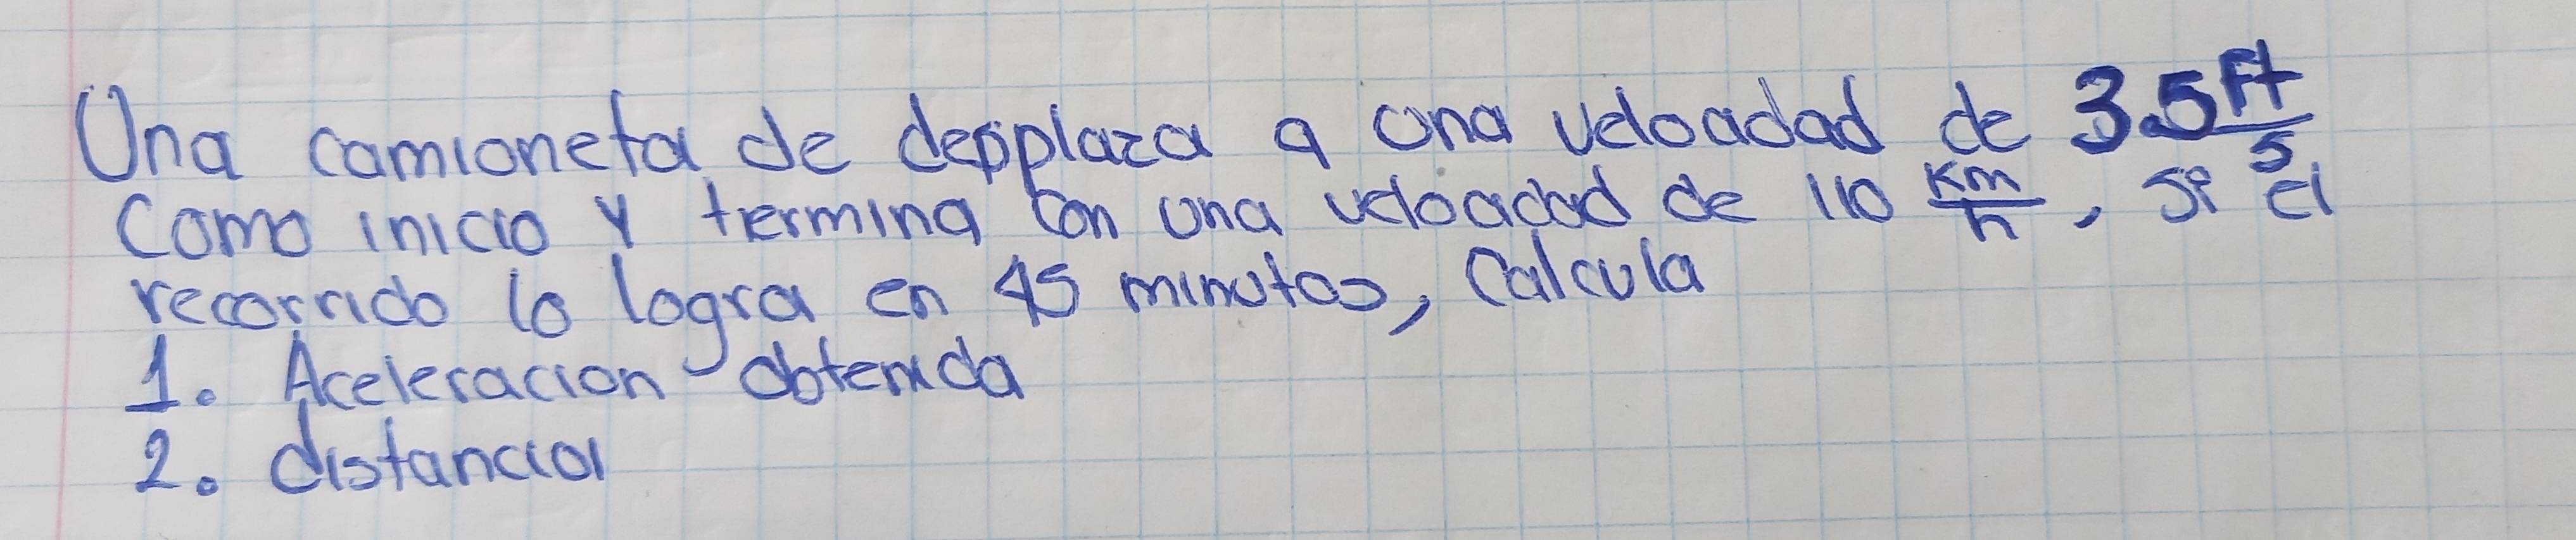 Una camioneta de desplaza a una velocidad de 35 ft/s
Como inicio y termina con una velocidad de 110 Km/h, si el
recorrido lo logra en 45 minutos, Calcula
1. Aceleracion obtenida
2. distancia